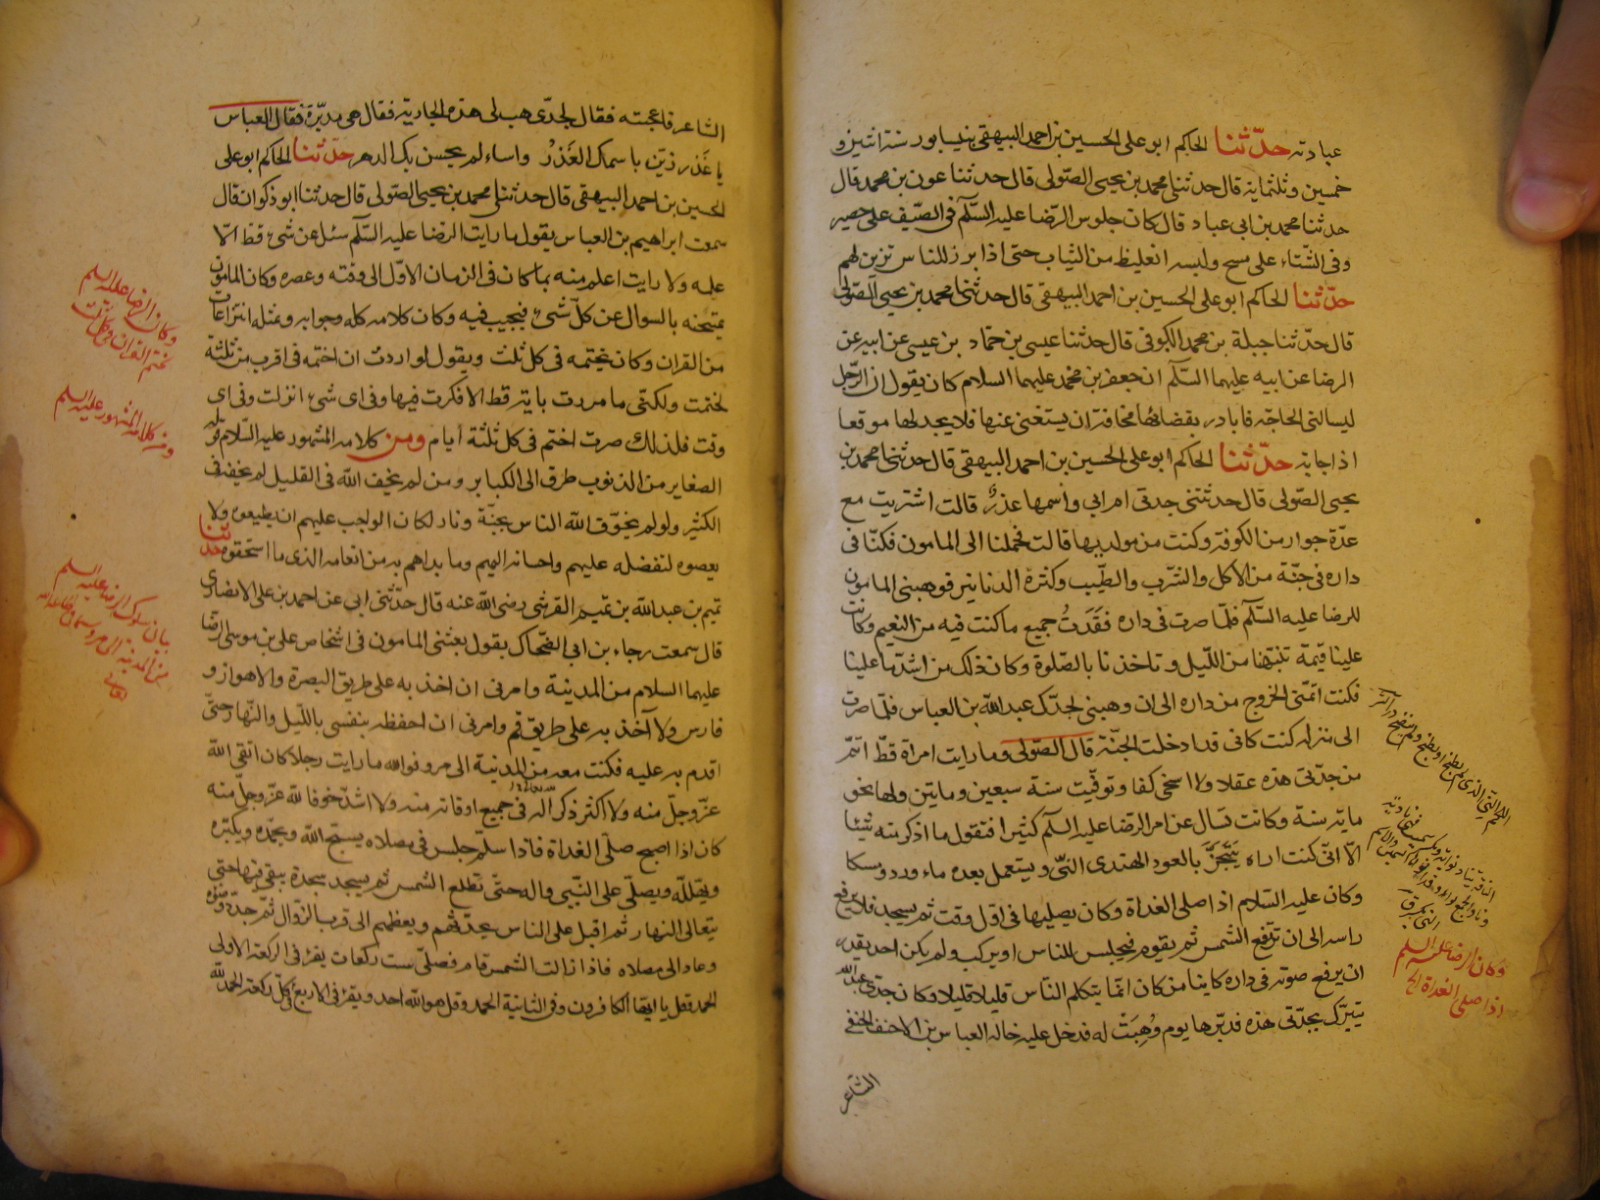 عبادته حدّثنا الحاكم ابو على الحسين بن احمد البيهقى بنيسابور سنة اثنين و
خمسين و ثلثمايه قال حدثنا محمد بن يحيى الصّولى قال حدثنا عون بن محمد قال
حدثنا محمد بن ابى عباد قال كان جلوس الرّضا عليه السّلم فى الصّيف على حصير
وفى الشّتاء على مسح ولبسه الغليظ من الثياب حتى اذا برز للناس تزين لهم
حدّثنا الحاكم ابو على الحسين بن احمد البيهقى قال حدثنا محمد بن يحيى الصّولى
قال حدّثنا جبلة بن محمد الكوفى قال حدثنا عيسى بن حماد بن عيسى عن ابيه عن
الرضا عن ابيه عليهما السّلم ان جعفر بن محمد عليهما السلام كان يقول ان الرّجل
ليسالنى الحاجة فابادر بقضائها مخافة ان يستغنى عنها فلا يجد لها موقعا
اذا جايته حدّثنا الحاكم ابو على الحسين بن احمد البيهقى قال حدثنى محمد بن
يحيى الصّولى قال حدثتنى جدتى ام ابى واسمها عذرٌ قالت اشتريت مع
عدّة جوار من الكوفة وكنت من مولديها قالت فحملنا الى المامون فكنّا فى
داره فى جنّة من الاكل والشّرب والطّيب وكثرة الدنانير فوهبنى المامون
للرضا عليه السّلم فلمّا صرت فى داره فقدتُ جميع ما كنت فيه من النعيم وكانت
علينا قيمة تنبّهنا من اللّيل وتاخذنا بالصّلوة وكان ذلك من اشدّ ما علينا
فكنت اتمنّى الخروج من داره الى ان وهبنى لجدّك عبدالله بن العباس فلمّا صرت
الى منزله كنت كانى قد ادخلت الجنّة قال الصّولى وما رايت امراة قطّ اتمّ
من جدّتى هذه عقلا ولا اسخى كفا وتوفّيت سنة سبعين ومايتين ولها نحو
مايته سنة وكانت تسال عن امر الرّضا عليه السّلم كثيرا فتقول ما اذكر منه شيئا
الّا انّى كنت اراه يتبخّر بالعود الهندى النّى ويستعمل بعده ماء ورد ومسكا
وكان عليه السلام اذا صلى الغداة وكان يصليها فى اوّل وقت ثم يسجد فلا يرفع
راسه الى ان ترتفع الشمس ثم يقوم فيجلس للناس او يركب ولم يكن احد يقدر
ان يرفع صوته فى داره كاينا من كان انمّا يتكلم النّاس قليلا قليلا وكان جدى عبدالله
يتبرّك بجدّتى هذه فدبّرها يوم وُهِبَتْ له فدخل عليه خاله العباس بن الاحنف الحنفى
الشاعر
وكان الرضا عليه السلم
اذا صلى الغداة الخ
الشاعر فاعجبته فقال لجدّى هب لى هذه الجارية فقال هى مدبّرة فقال العباس
يا عَذر زيّن باسمك العَذرُ واساء لم يحسن بك الدهر حدّثنا الحاكم ابو على
الحسين بن احمد البيهقى قال حدثنا محمد بن يحيى الصّولى قال حدثنا ابو ذكوان قال
سمعت ابراهيم بن العباس يقول ما رايت الرضا عليه السّلم سئل عن شئ قط الّا
علمه ولا رايت اعلم منه بما كان فى الزمان الاوّل الى وقته وعصره وكان المامون
يمتحنه بالسوال عن كلّ شئ فيجيب فيه وكان كلامه كله وجوابه وتمثله انتزاعات
من القران وكان يختمه فى كل ثلث ويقول لو اردت ان اختمه فى اقرب من ثلثة
لختمت ولكنّى ما مررت باية قط الا فكرت فيها وفى اى شئ انزلت وفى اى
وقت فلذلك صرت اختم فى كل ثلثة ايام ومن كلامه المشهور عليه السلام قوله
الصغاير من الذنوب طرق الى الكباير ومن لم يخف الله فى القليل لم يخفه فى
الكثير ولو لم يخوّف الله الناس بجنّة ونار لكان الواجب عليهم ان يطيعوه ولا
يعصوه لتفضله عليهم واحسانه اليهم وما بداهم به من انعامه الذى ما استحقوه حدثنا
تميم بن عبدالله بن تميم القرشى رضى الله عنه قال حدّثنى ابى عن احمد بن على الانصارى
قال سمعت رجاء بن ابى الضّحاك يقول بعثنى المامون فى اشخاص على بن موسى الرّضا
عليهما السلام من المدينة وامرنى ان اخذ به على طريق البصرة والاهواز و
فارس ولا آخذ به على طريق قم وامرنى ان احفظه بنفسى بالليل والنّهار حتّى
اقدم به عليه فكنت معه من المدينة الى مرو فوالله ما رايت رجلا كان اتقى الله
عزّ وجلّ منه ولا اكثر ذكر الله فى جميع اوقاته منه ولا اشدّ خوفا لله عزّ وجلّ منه
كان اذا اصبح صلّى الغداة فاذا سلّم جلس فى مصلاه يسبّح الله ويحمّده ويكبّره
ويهلّله ويصلّى على النّبى واله حتّى تطلع الشمس ثم يسجد سجدة يبقى فيها حتى
يتعالى النهار ثم اقبل على الناس يحدّثهم ويعظهم الى قرب الزّوال ثمّ جدّد وضوه
وعاد الى مصلاه فاذا زالت الشمس قام فصلّى ست ركعات يقرء فى الركعة الاولى
الحمد وقل يا ايّها الكافرون وفى الثانية الحمد وقل هو الله احد ويقرء فى الاربع فى كلّ ركعة الحمد لله
وكان الرضا عليه السلم
يختم القران فى كل ثلث
ومن كلامه المشهور عليه السلم
بيان سلوك الرضا عليه السلم
من المدينة الى مرو